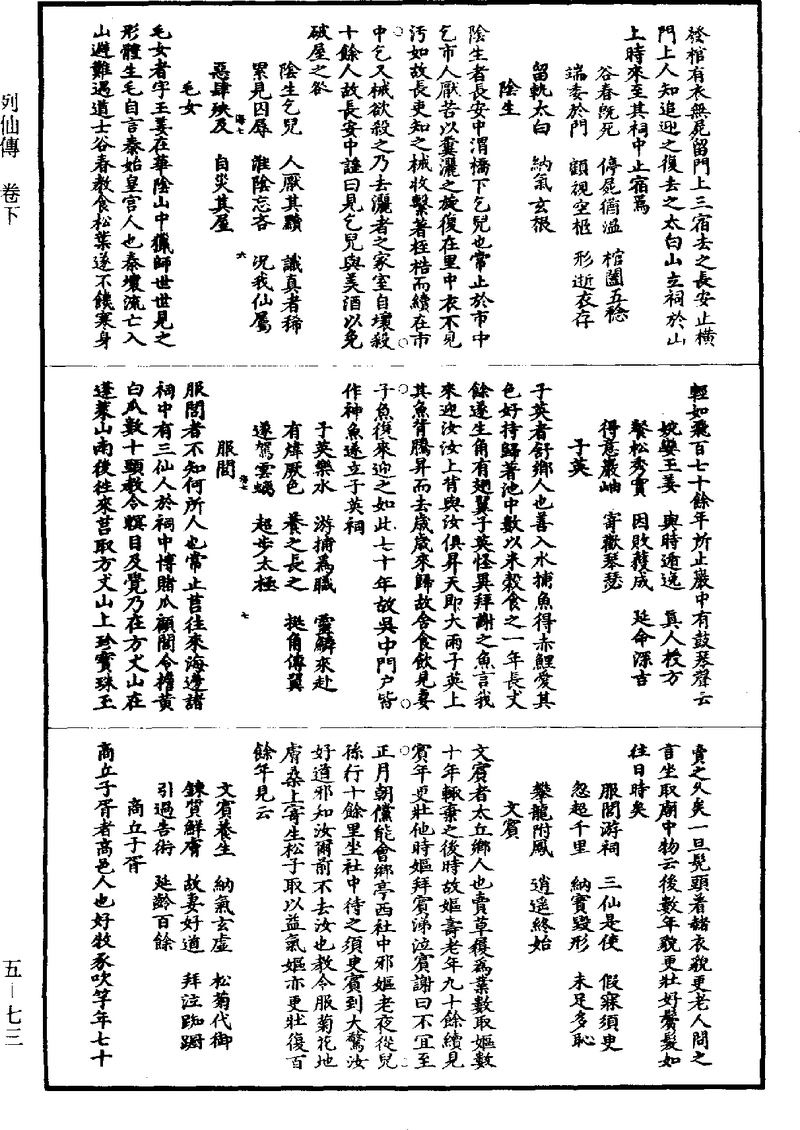 列仙傳 卷下
發棺有衣無屍留門上三宿去之長安止橫
門上人知追迎之復去之太白山立祠於山
上時來至其祠中止宿焉
谷春既死 停屍猶溫 棺闔五稔
端委於門 顧視空柩 形逝衣存
留軌太白 納氣玄根
陰生
陰生者長安中渭橋下乞兒也常止於市中
乞市人厭苦以糞灑之旋復在里中衣不見
汚如故長吏知之械收繫著桎梏而續在市
中乞又械欲殺之乃去灑者之家室自壞殺
十餘人故長安中謠曰見乞兒與美酒以免
破屋之咎
陰生乞兒 人厭其黷 識真者稀
累見囚辱 淮陰忘吝 況我仙屬
惡肆殃及 自災其屋
毛女
毛女者字玉姜在華陰山中獵師世世見之
形體生毛自言秦始皇宮人也秦壞流亡入
山避難遇道士谷春教食松葉遂不饑寒身
輕如飛百七十餘年所止巖中有鼓琴聲云
婉孌玉姜 與時遁逸 真人授方
餐松秀實 因敗獲成 延命深吉
得意巖岫 寄歡琴瑟
子英
子英者舒鄉人也善入水捕魚得赤鯉愛其
色好持歸著池中數以米穀食之一年長丈
餘遂生角有翅翼子英怪異拜謝之魚言我
來迎汝汝上背與汝俱昇天即大雨子英上
其魚背騰昇而去歲歲來歸故舍食飲見妻
子魚復來迎之如此七十年故吳中門戶皆
作神魚遂立子英祠
子英樂水 游捕為職 靈鱗來赴
有煒厥色 養之長之 挺角傅翼
遂駕雲螭 超步太極
服閭
服閭者不知何所人也常止莒往來海邊諸
祠中有三仙人於祠中博賭瓜顧閭令擔黃
白瓜數十頭教令瞑目及覺乃在方丈山在
蓬萊山南後往來莒取方丈山上珍寶珠玉
賣之久矣一旦髡頭着赭衣貌更老人問之
言坐取廟中物云後數年貌更壯好鬢髮如
往日時矣
服閭游祠 三仙是使 假寐須臾
忽超千里 納寶毀形 未足多恥
攀龍附鳳 逍遥終始
文賓
文賓者太丘鄉人也賣草履為業數取嫗數
十年輒棄之後時故嫗壽老年九十餘續見
賓年更壯他時嫗拜賓涕泣賓謝曰不宜至
正月朝儻能會鄉亭西社中邪嫗老夜從兒
孫行十餘里坐社中待之須臾賓到大驚汝
好道邪知汝爾前不去汝也教令服菊花地
膚桑上寄生松子取以益氣嫗亦更壯復百
餘年見云
文賓養生 納氣玄虛 松菊代御
鍊質鮮膚 故妻好道 拜泣踟躕
引過告術 延齡百餘
商丘子胥
商丘子胥者高邑人也好牧豕吹竽年七十
五—七三